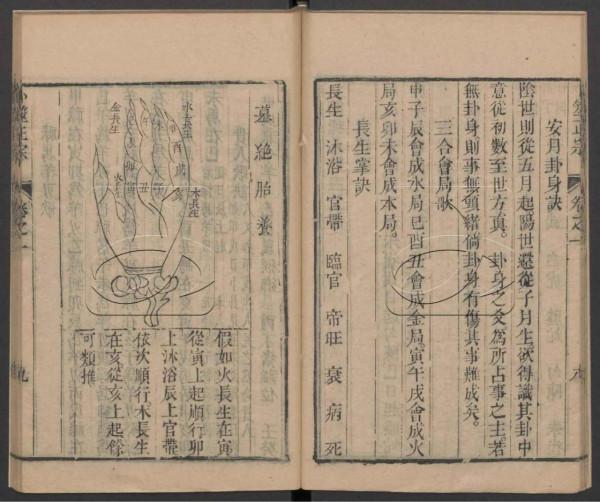 安月卦身訣
陰世則從五月起陽世還從子月生欲得識其卦中
意從初數至世方真。卦身之爻爲所占事之主若
無卦身則事無頭緒倘卦身有傷其事難成矣。
三合會局歌
申子辰會成水局巳酉丑會成金局寅午戌會成火
局亥卯未會成木局。
長生掌訣
長生 沐浴 官帶 臨官 帝旺 衰 病 死
卷之一
墓 絕 胎 養
水長生
金長生
火長生
木長生
申 酉 戌 亥
丑
假如火長生在寅
從寅上起順行卯
上沐浴辰上官帶
依次順行木長生
在亥從亥上起餘
可類推
卷之一
九